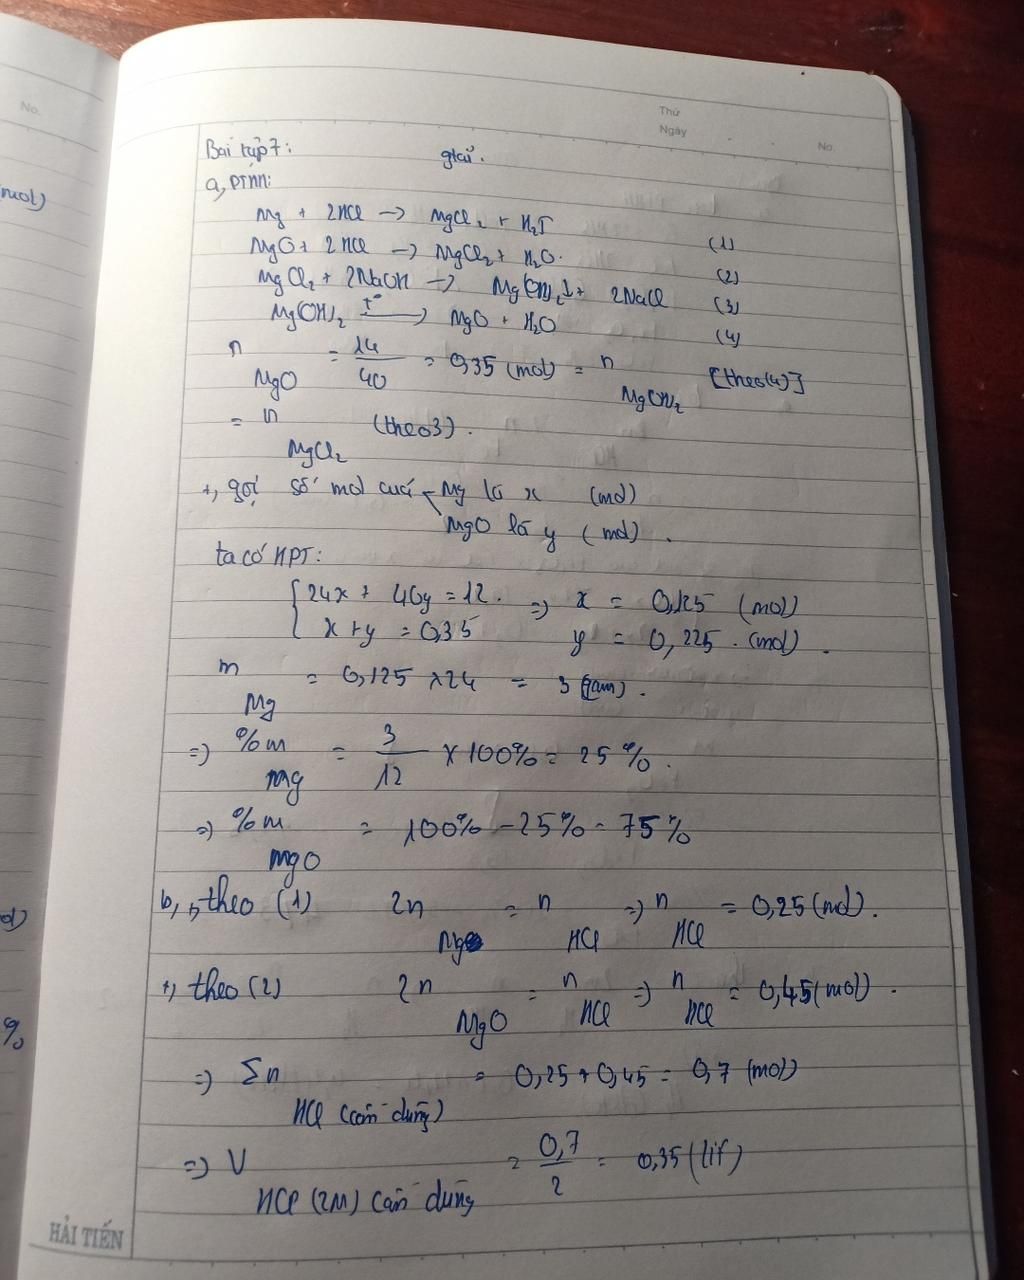 No.
Thứ
Ngày
No.
mol)
Bài tập 7: giải.
a, PTHH:
Mg + 2HCl → MgCl₂ + H₂↑ (1)
MgO + 2HCl → MgCl₂ + H₂O. (2)
MgCl₂ + 2NaOH → Mg(OH)₂↓ + 2NaCl (3)
Mg(OH)₂ t° → MgO + H₂O (4)
n MgO = 14/40 = 0,35 (mol) = n Mg(OH)₂ [theo(4)]
= n MgCl₂ (theo 3).
+, gọi số mol của Mg là x (mol)
MgO là y (mol).
ta có HPT:
{ 24x + 40y = 12. => x = 0,125 (mol)
x + y = 0,35 y = 0,225. (mol).
m Mg = 0,125 x 24 = 3 (gam).
=> %m Mg = 3/12 x 100% = 25%.
=> %m MgO = 100% - 25% = 75%
b, +, theo (1) 2n Mg = n HCl => n HCl = 0,25 (mol).
+, theo (2) 2n MgO = n HCl => n HCl = 0,45 (mol).
=> Σn HCl (cần dùng) = 0,25 + 0,45 = 0,7 (mol)
=> V HCl (2M) cần dùng = 0,7/2 = 0,35 (lít)
%
HẢI TIẾN